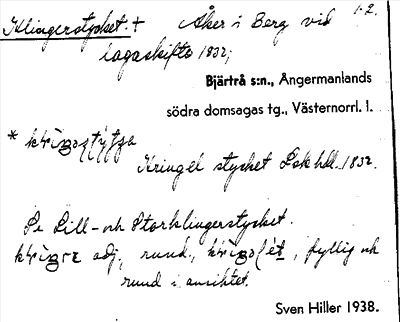 Klingerstycket. + Åker i Berg vid 1-2.
lagaskifte 1832;
Bjärtrå s:n., Ångermanlands
södra domsagas tg., Västernorrl. l.
*
Kringel stycket Lsk hdl. 1832.
Se Lill- och Storklingerstycket.
adj, rund, fyllig och
rund i ansiktet.
Sven Hiller 1938.